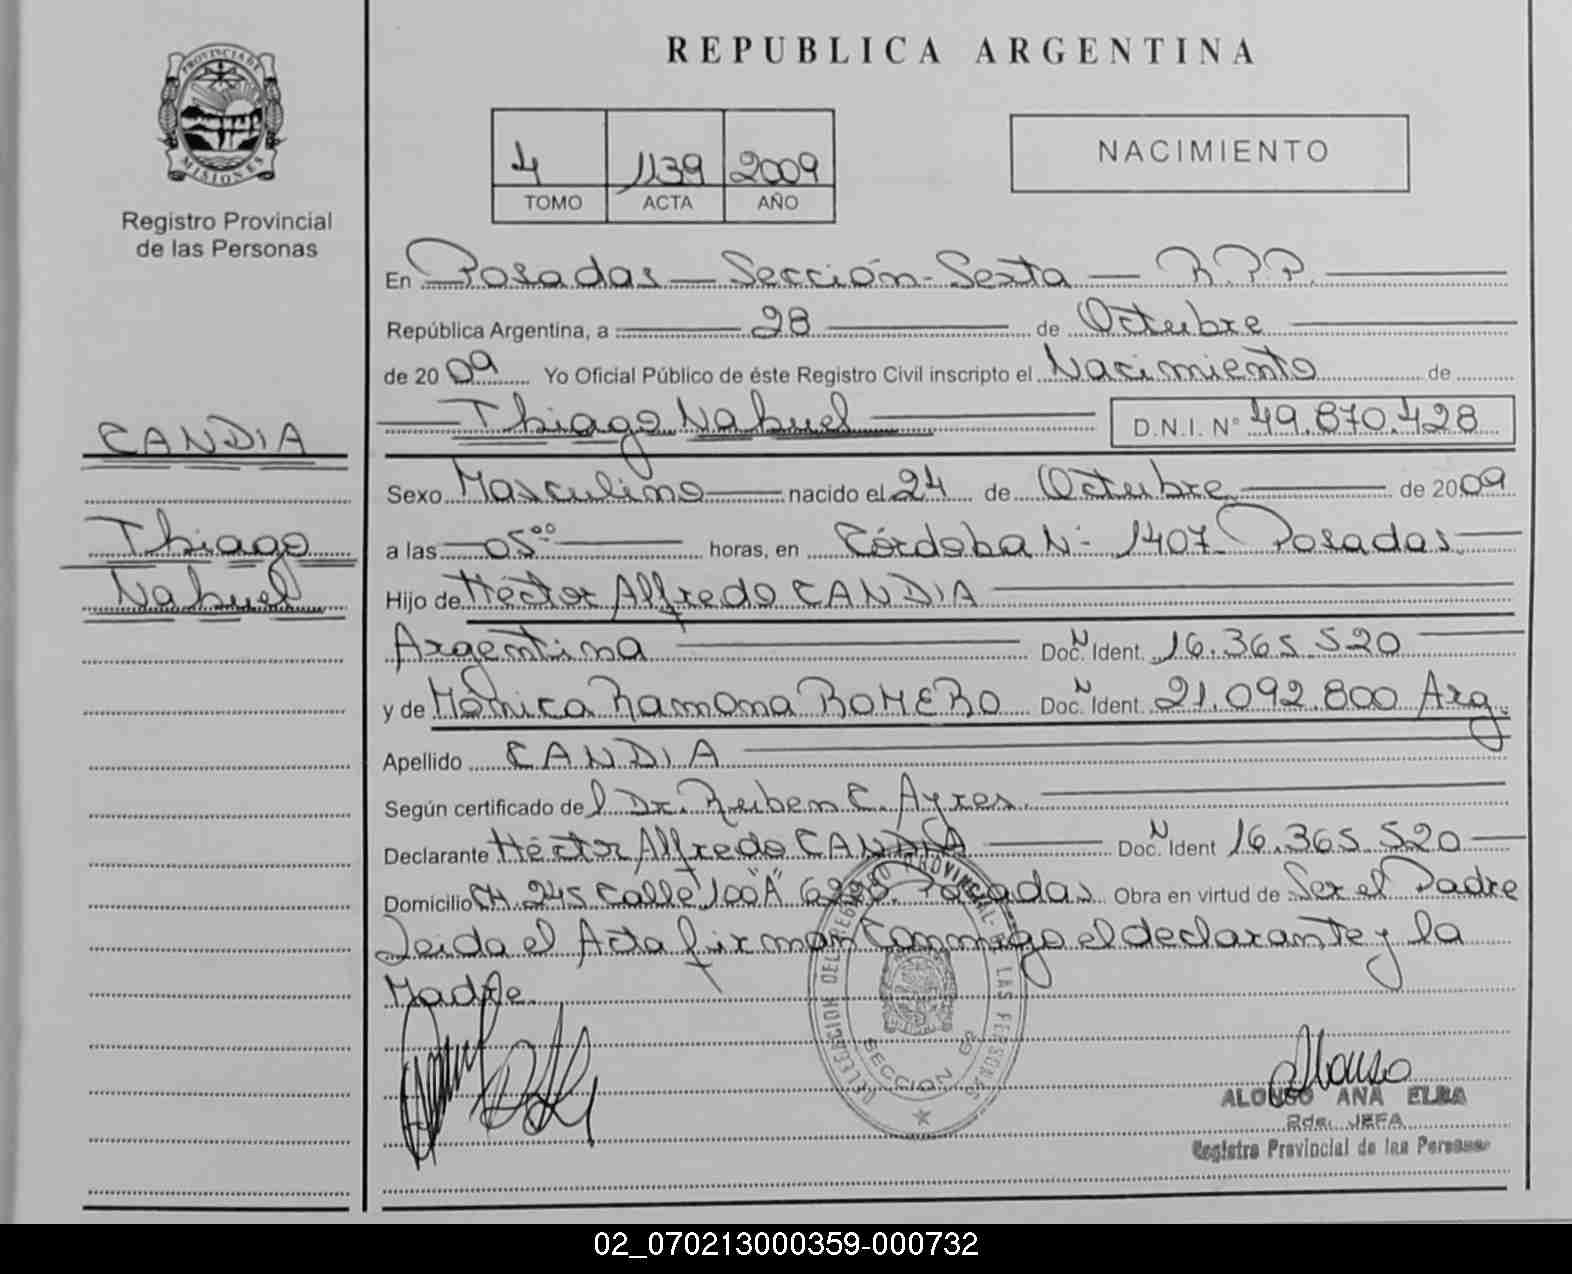 PROVINCIA DE
MISIONES
Registro Provincial
de las Personas
CANDIA
Thiago
Nahuel
REPUBLICA ARGENTINA
4 1139 2009
TOMO ACTA AÑO
NACIMIENTO
En Posadas - Sección - Sexta - R.P.P.
República Argentina, a 28 de Octubre
de 2009 Yo Oficial Público de éste Registro Civil inscripto el Nacimiento de
Thiago Nahuel D.N.I. N° 49.870.428
Sexo Masculino nacido el 24 de Octubre de 2009
a las 05⁰⁰ horas, en Córdoba N- 1407- Posadas
Hijo de Héctor Alfredo CANDIA
Argentina Doc. N Ident. 16.365.520
y de Mónica Ramona ROMERO Doc. N Ident. 21.092.800 Arg.
Apellido CANDIA
Según certificado del Dr. Ruben C. Ayres
Declarante Héctor Alfredo CANDIA Doc. N Ident 16.365.520
Domicilio CH. 245 Calle 100"A" Posadas Obra en virtud de Ser el Padre
Leida el Acta firman Conmigo el declarante y la
Madre.
DIRECCION DEL REGISTRO PROVINCIAL DE LAS PERSONAS
SECCION 6ª
Alonso
ALONSO ANA ELBA
2da. JEFA
Registro Provincial de las Personas
02_070213000359-000732